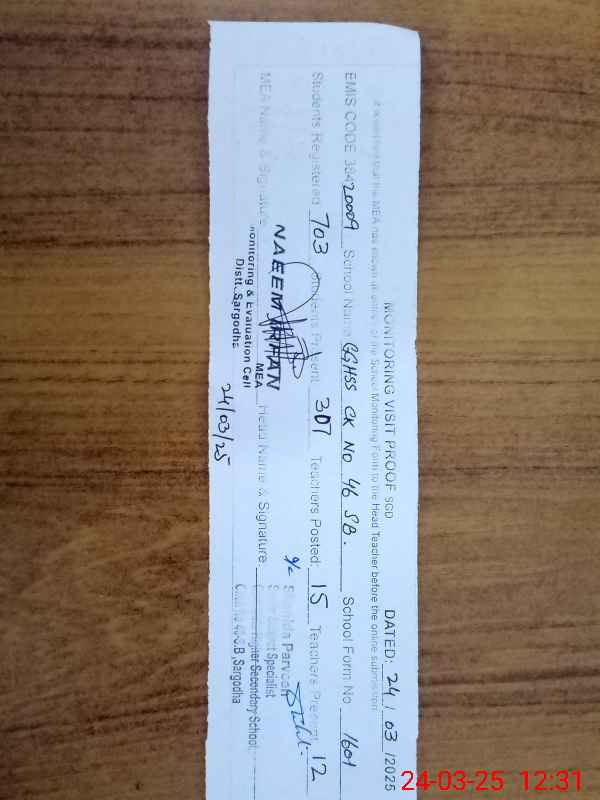 MONITORING VISIT PROOF SGD DATED: 24/03/2025
that the MEA has shown all entries of the School Monitoring Form to the Head Teacher before the online submission
EMIS CODE 38420009 School Name GGHSS CK No 46 SB. School Form No 1601
Students Registered 703 Students Present 307 Teachers Posted: 15 Teachers Present 12
MEA Name & Signature NAEEM IRFAN Head Name & Signature
MEA
Monitoring & Evaluation Cell
Distt. Sargodha
24/03/25
Parveen
Subject Specialist
Higher Secondary School
46-S.B, Sargodha
24-03-25 12:31